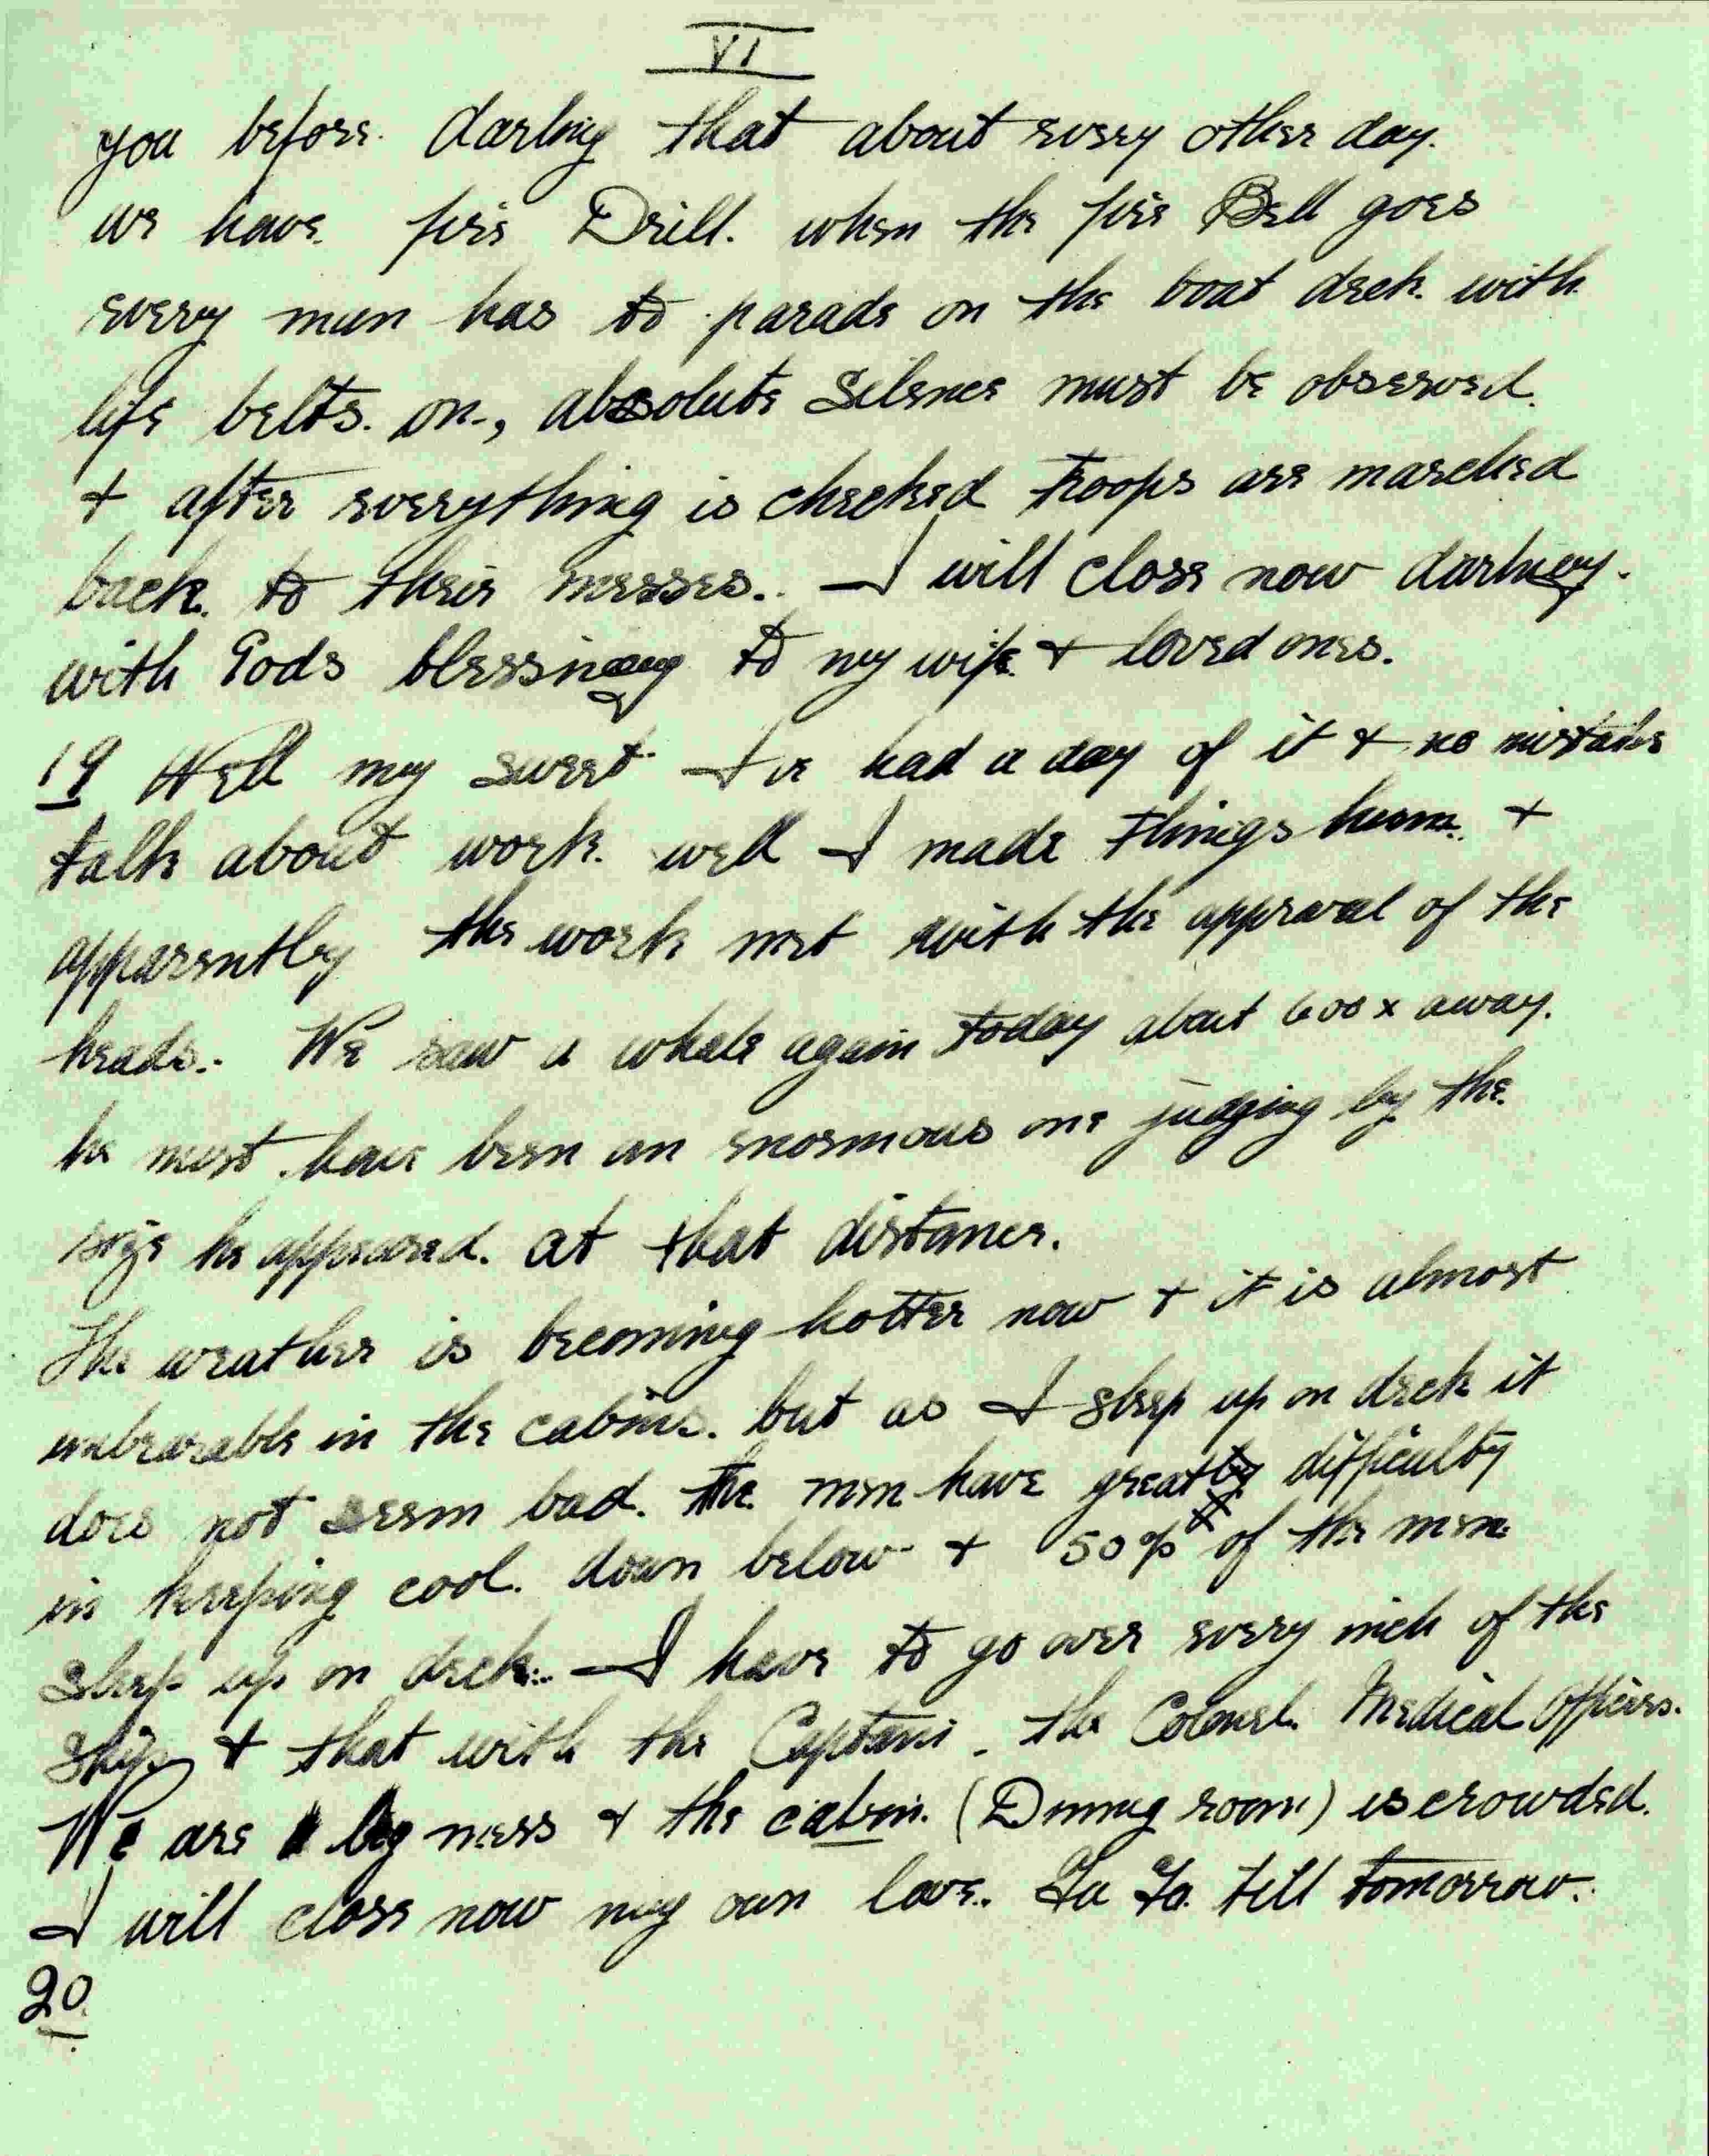 VI
you before. darling that about every other day.
we have. fire Drill. when the fire Bell goes
every man has to parade on the boat deck. with
life belts. on., absolute Silence must be observed.
+ after everything is checked troops are marched
back. to their messes.. I will close now darling.
with Gods blessing to my wife. + loved ones.
19 Well my sweet I've had a day of it + no mistake
talk about work. well I made things hum. +
apparently the work met with the approval of the
heads.. We saw a whale again today about 600 x away.
he must have been an enormous one judging by the.
size he appeared. at that distance.
The weather is becoming hotter now + it is almost
unbearable in the cabins. but as I sleep up on deck it
does not seem bad. The men have great difficulty
in keeping cool. down below + 50% of the men
sleep up on deck... I have to go over every inch of the
ship + that with the Captain. the Colonel. Medical Officers.
We are big mess + the cabin. (Dinning room) is crowded.
I will close now my own love.. Ta Ta. till tomorrow..
20.